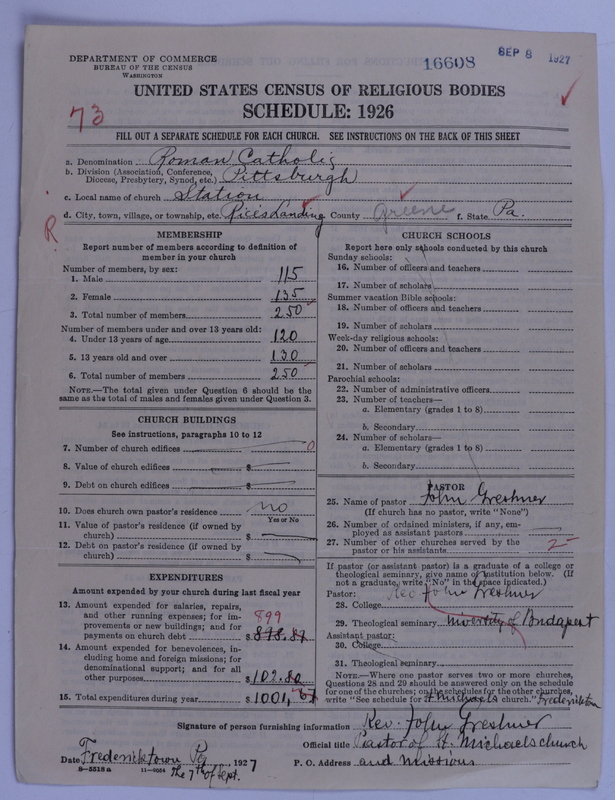 DEPARTMENT OF COMMERCE
BUREAU OF THE CENSUS
WASHINGTON
16608
SEP 8 1927
UNITED STATES CENSUS OF RELIGIOUS BODIES
SCHEDULE: 1926
73
FILL OUT A SEPARATE SCHEDULE FOR EACH CHURCH. SEE INSTRUCTIONS ON THE BACK OF THIS SHEET
a. Denomination Roman Catholic
b. Division (Association, Conference, Diocese, Presbytery, Synod, etc.) Pittsburgh
c. Local name of church Station
d. City, town, village, or township, etc. Rices Landing County Greene f. State Pa.
R
MEMBERSHIP
Report number of members according to definition of
member in your church
Number of members, by sex:
1. Male 115
2. Female 135
3. Total number of members 250
Number of members under and over 13 years old:
4. Under 13 years of age 120
5. 13 years old and over 130
6. Total number of members 250
NOTE.—The total given under Question 6 should be the
same as the total of males and females given under Question 3.
CHURCH BUILDINGS
See instructions, paragraphs 10 to 12
7. Number of church edifices 0
8. Value of church edifices $
9. Debt on church edifices $
10. Does church own pastor's residence no
Yes or No
11. Value of pastor's residence (if owned by
church) $
12. Debt on pastor's residence (if owned by
church) $
EXPENDITURES
Amount expended by your church during last fiscal year
13. Amount expended for salaries, repairs,
and other running expenses; for im-
provements or new buildings; and for
payments on church debt $ 899
14. Amount expended for benevolences, in-
cluding home and foreign missions; for
denominational support; and for all
other purposes $ 102.80
15. Total expenditures during year $ 1001,
CHURCH SCHOOLS
Report here only schools conducted by this church
Sunday schools:
16. Number of officers and teachers
17. Number of scholars
Summer vacation Bible schools:
18. Number of officers and teachers
19. Number of scholars
Week-day religious schools:
20. Number of officers and teachers
21. Number of scholars
Parochial schools:
22. Number of administrative officers
23. Number of teachers—
a. Elementary (grades 1 to 8)
b. Secondary
24. Number of scholars—
a. Elementary (grades 1 to 8)
b. Secondary
PASTOR
25. Name of pastor John Greshner
(If church has no pastor, write "None")
26. Number of ordained ministers, if any, em-
ployed as assistant pastors
27. Number of other churches served by the
pastor or his assistants 2
If pastor (or assistant pastor) is a graduate of a college or
theological seminary, give name of institution below. (If
not a graduate, write "No" in the space indicated.)
Pastor: Rev John Greshner
28. College
29. Theological seminary University of Budapest
Assistant pastor:
30. College
31. Theological seminary
NOTE.—Where one pastor serves two or more churches,
Questions 28 and 29 should be answered only on the schedule
for one of the churches; on the schedules for the other churches,
write "See schedule for St Michaels church." Fredericktown
Signature of person furnishing information Rev. John Greshner
Official title Pastor of St. Michaels church
Date Fredericktown Pa 1927 P. O. Address and missions
8—5518 a 11—9024 the 7th of Sept.